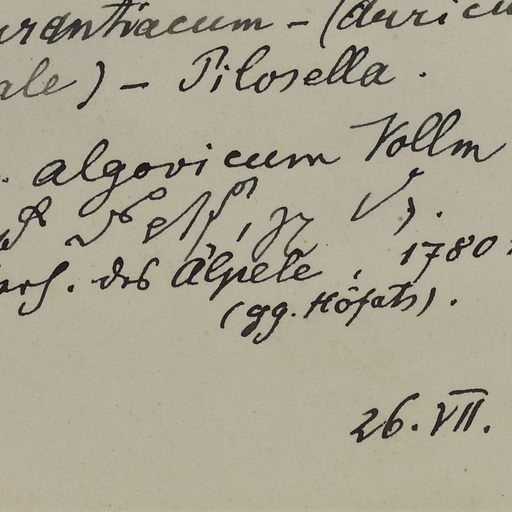 urantiacum - (Auricu
ale) - Pilosella.
. algovicum Vollm
des Älpele, 1780
(gg. Höfats).
26. VII.